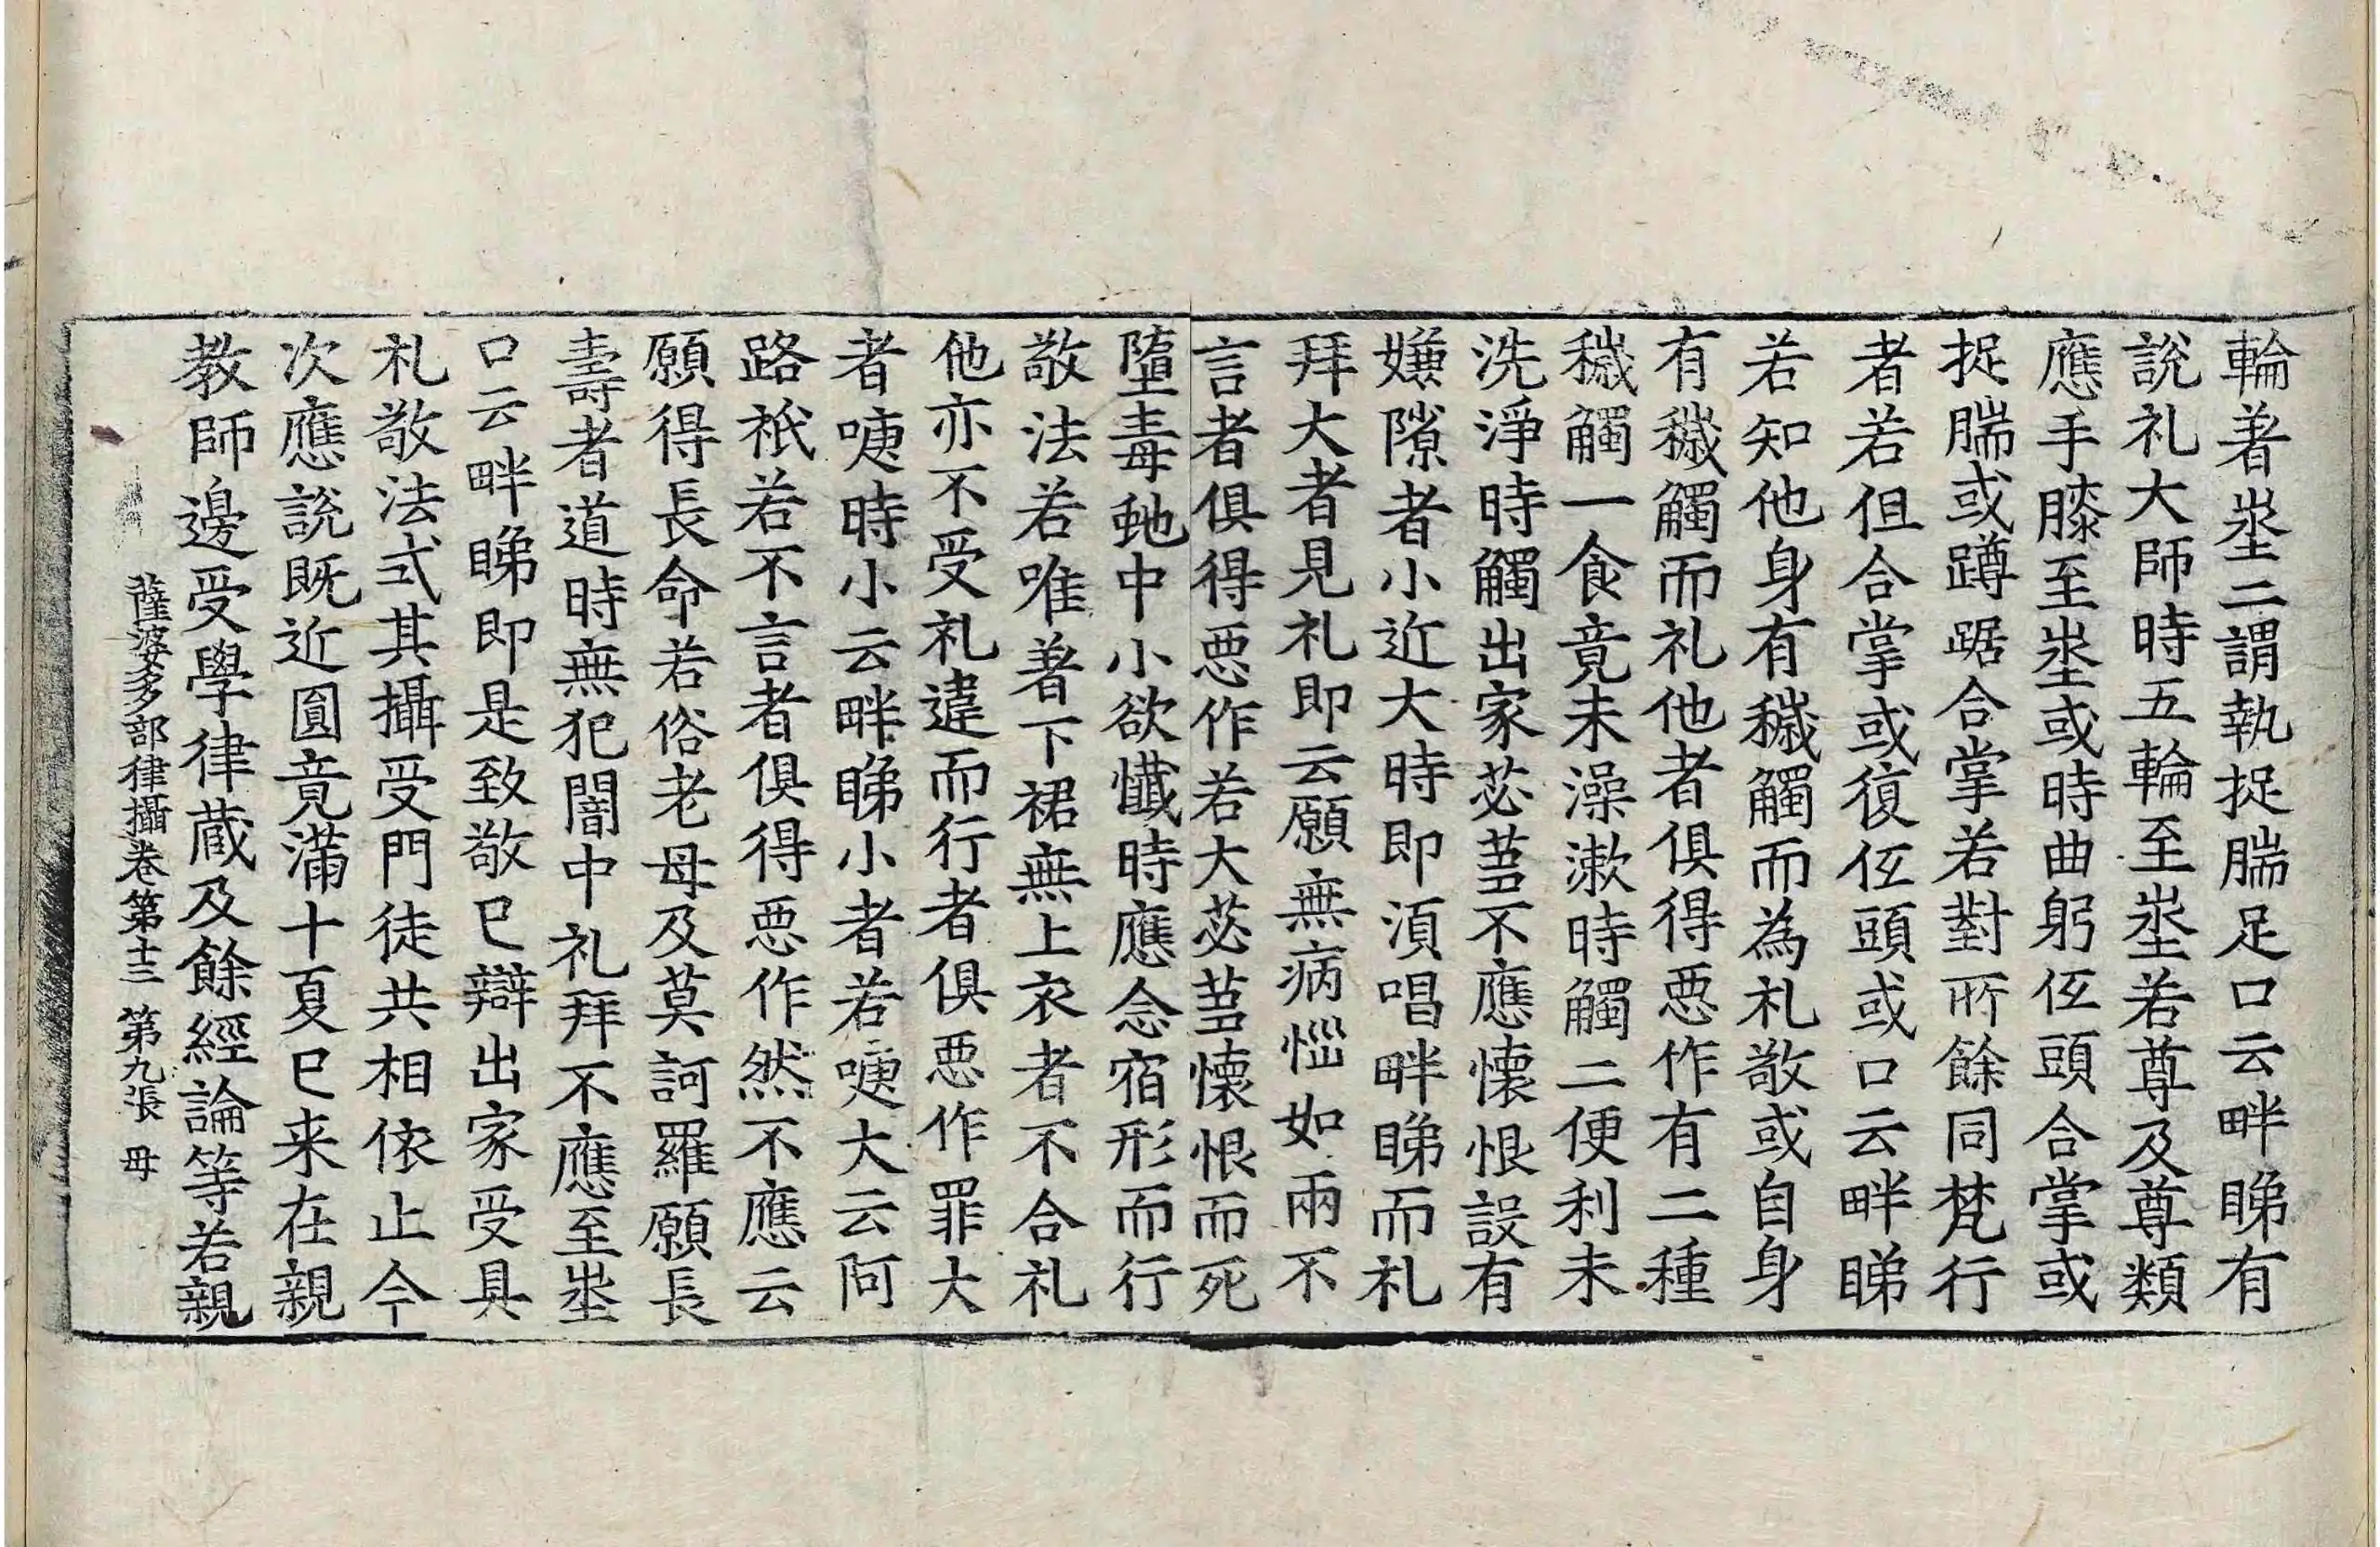 輪著坔二謂執捉腨足口云畔睇有
說礼大師時五輪至坔若尊及尊類
應手膝至坔或時曲躬仾頭合掌或
捉腨或蹲踞合掌若對所餘同梵行
者若但合掌或復仾頭或口云畔睇
若知他身有穢觸而為礼敬或自身
有穢觸而礼他者俱得惡作有二種
穢觸一食竟未澡漱時觸二便利未
洗淨時觸出家苾蒭不應懷恨設有
嫌隙者小近大時即須唱畔睇而礼
拜大者見礼即云願無病惱如兩不
言者俱得惡作若大苾蒭懷恨而死
墮毒虵中小欲懺時應念宿形而行
敬法若唯著下裙無上衣者不合礼
他亦不受礼違而行者俱惡作罪大
者嚏時小云畔睇小者若嚏大云阿
路祇若不言者俱得惡作然不應云
願得長命若俗老母及莫訶羅願長
壽者道時無犯闇中礼拜不應至坔
口云畔睇即是致敬已辯出家受具
礼敬法式其攝受門徒共相依止今
次應說既近圓竟滿十夏已来在親
教師邊受學律蔵及餘經論等若親
薩婆多部律攝卷第十三 第九張 毋